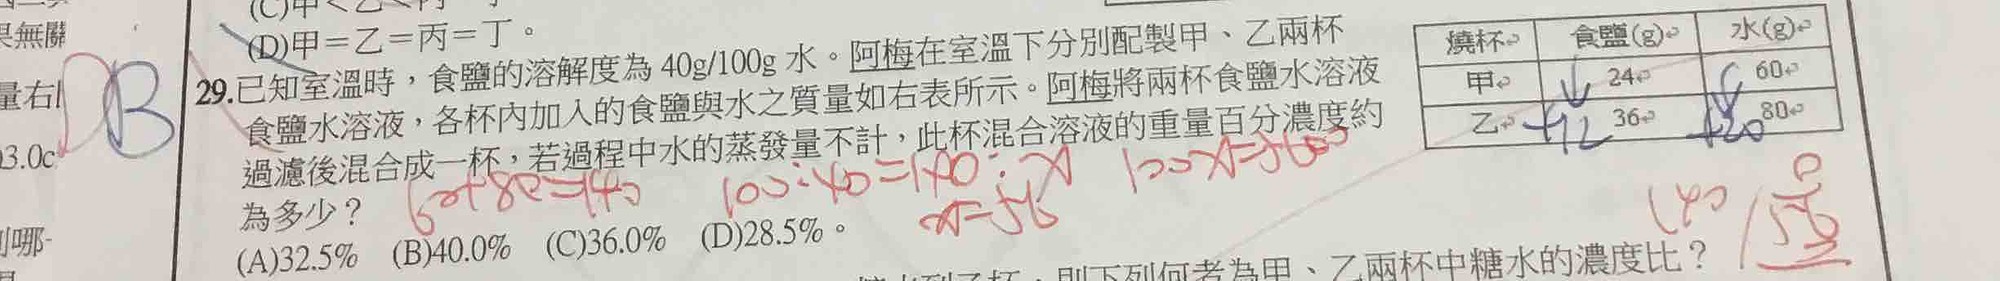 (D)甲=乙=丙=丁。
果無關
量右
03.0c
DB
29.已知室溫時，食鹽的溶解度為 40g/100g 水。阿梅在室溫下分別配製甲、乙兩杯
食鹽水溶液，各杯內加入的食鹽與水之質量如右表所示。阿梅將兩杯食鹽水溶液
過濾後混合成一杯，若過程中水的蒸發量不計，此杯混合溶液的重量百分濃度約
為多少？
(A)32.5% (B)40.0% (C)36.0% (D)28.5%。
燒杯 食鹽(g) 水(g)
甲 24 60
乙 36 80
+12 +20
60+80=140
100:40=140:x
100x=5600
x=56
則下列何者為甲、乙兩杯中糖水的濃度比？